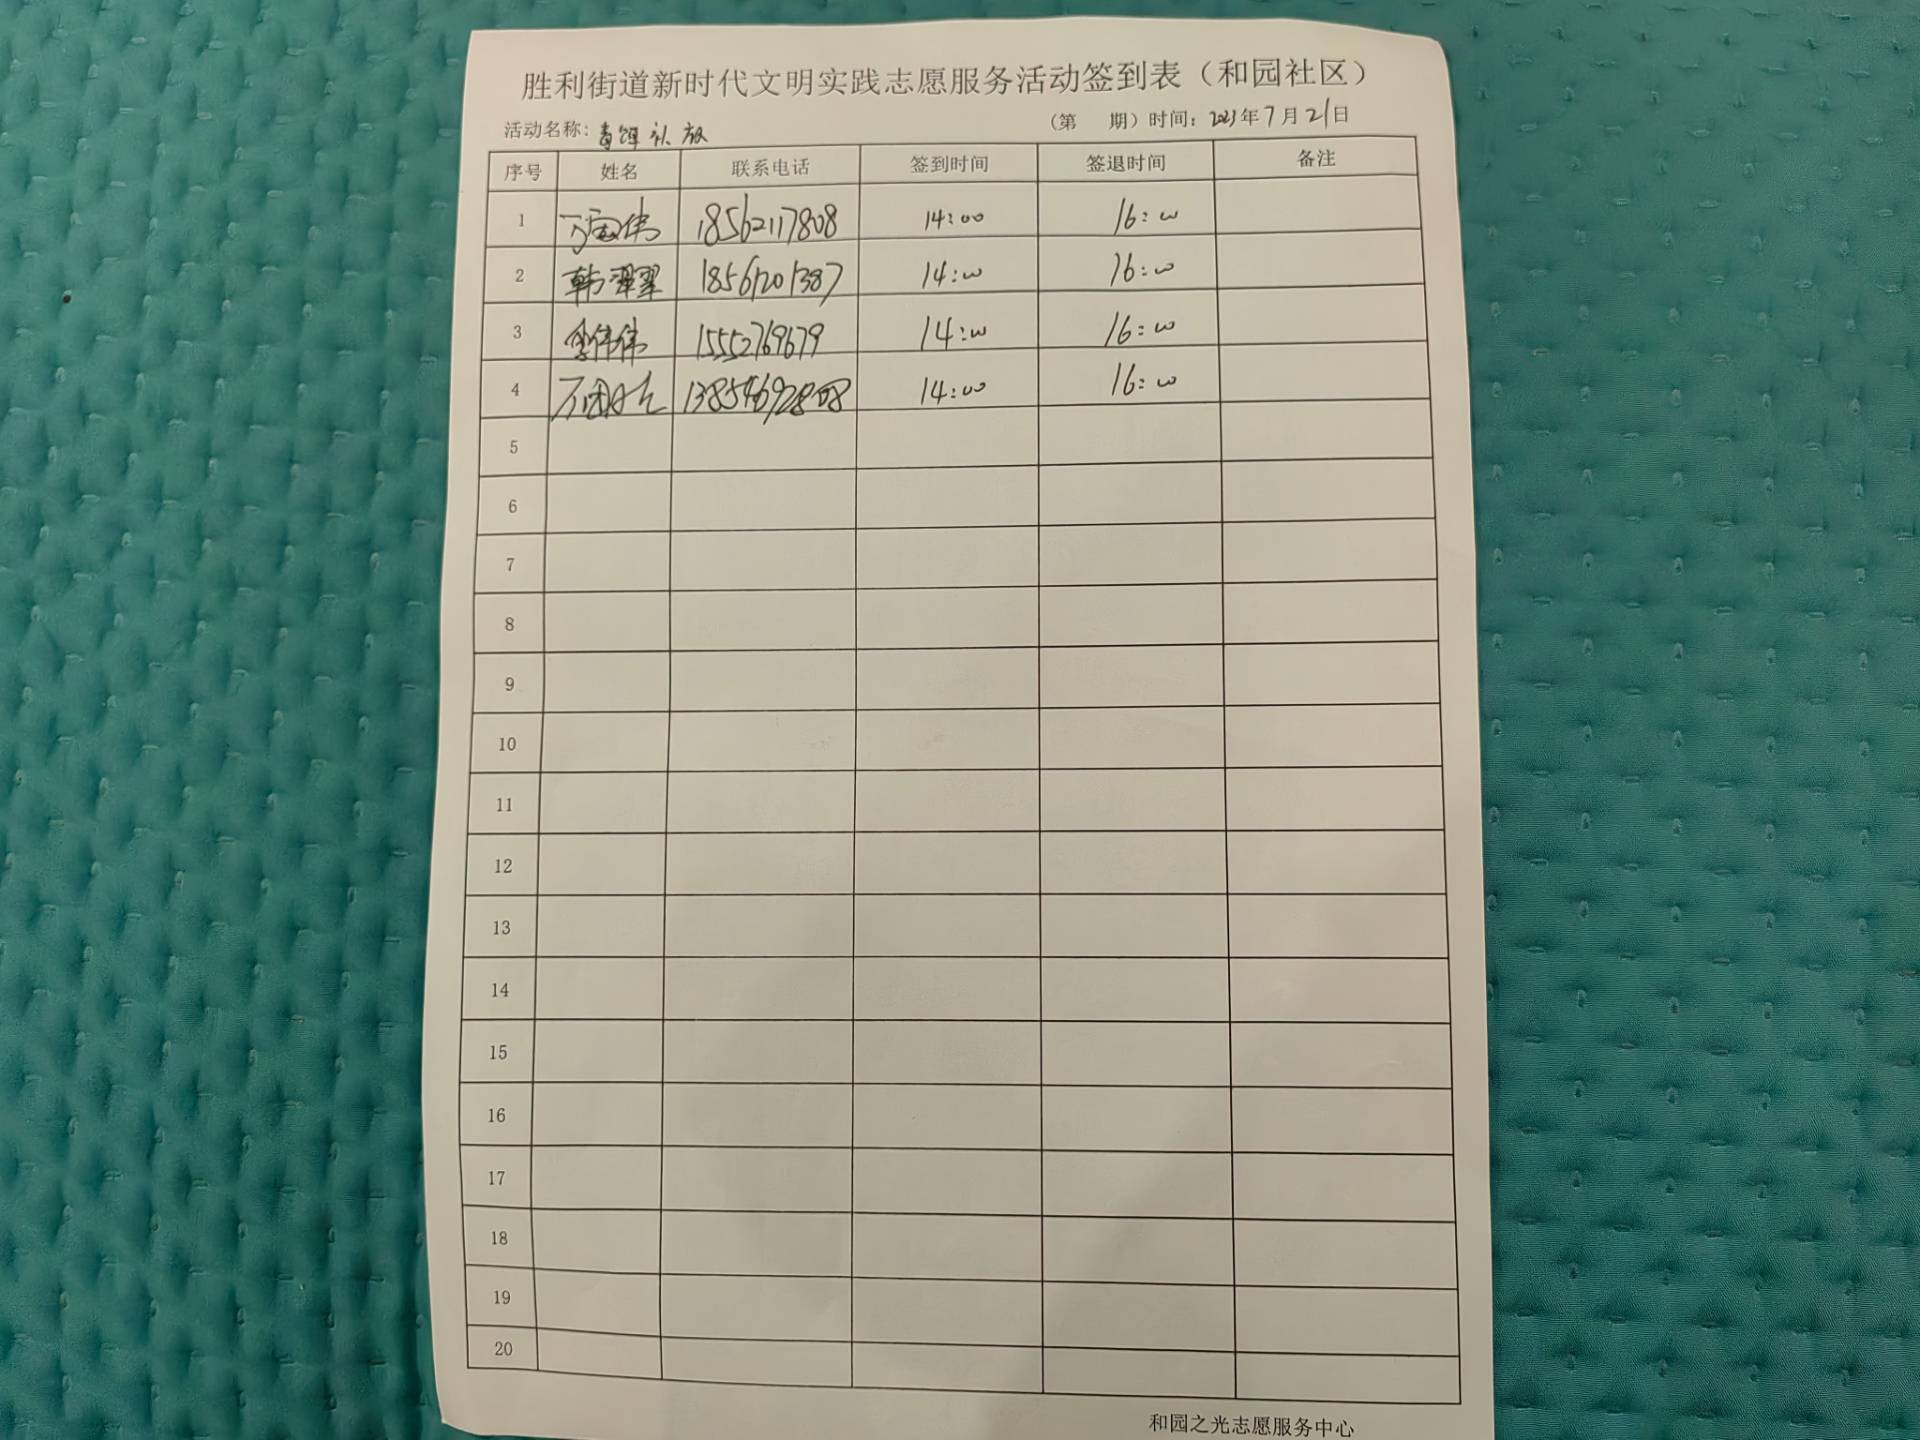 胜利街道新时代文明实践志愿服务活动签到表（和园社区）
活动名称：毒饵补放 （第 期）时间：2023年7月21日
序号 姓名 联系电话 签到时间 签退时间 备注
1 18562117808 14:00 16:00
2 韩翠翠 14:00 16:00
3 李伟伟 15552769679 14:00 16:00
4 14:00 16:00
5
6
7
8
9
10
11
12
13
14
15
16
17
18
19
20
和园之光志愿服务中心